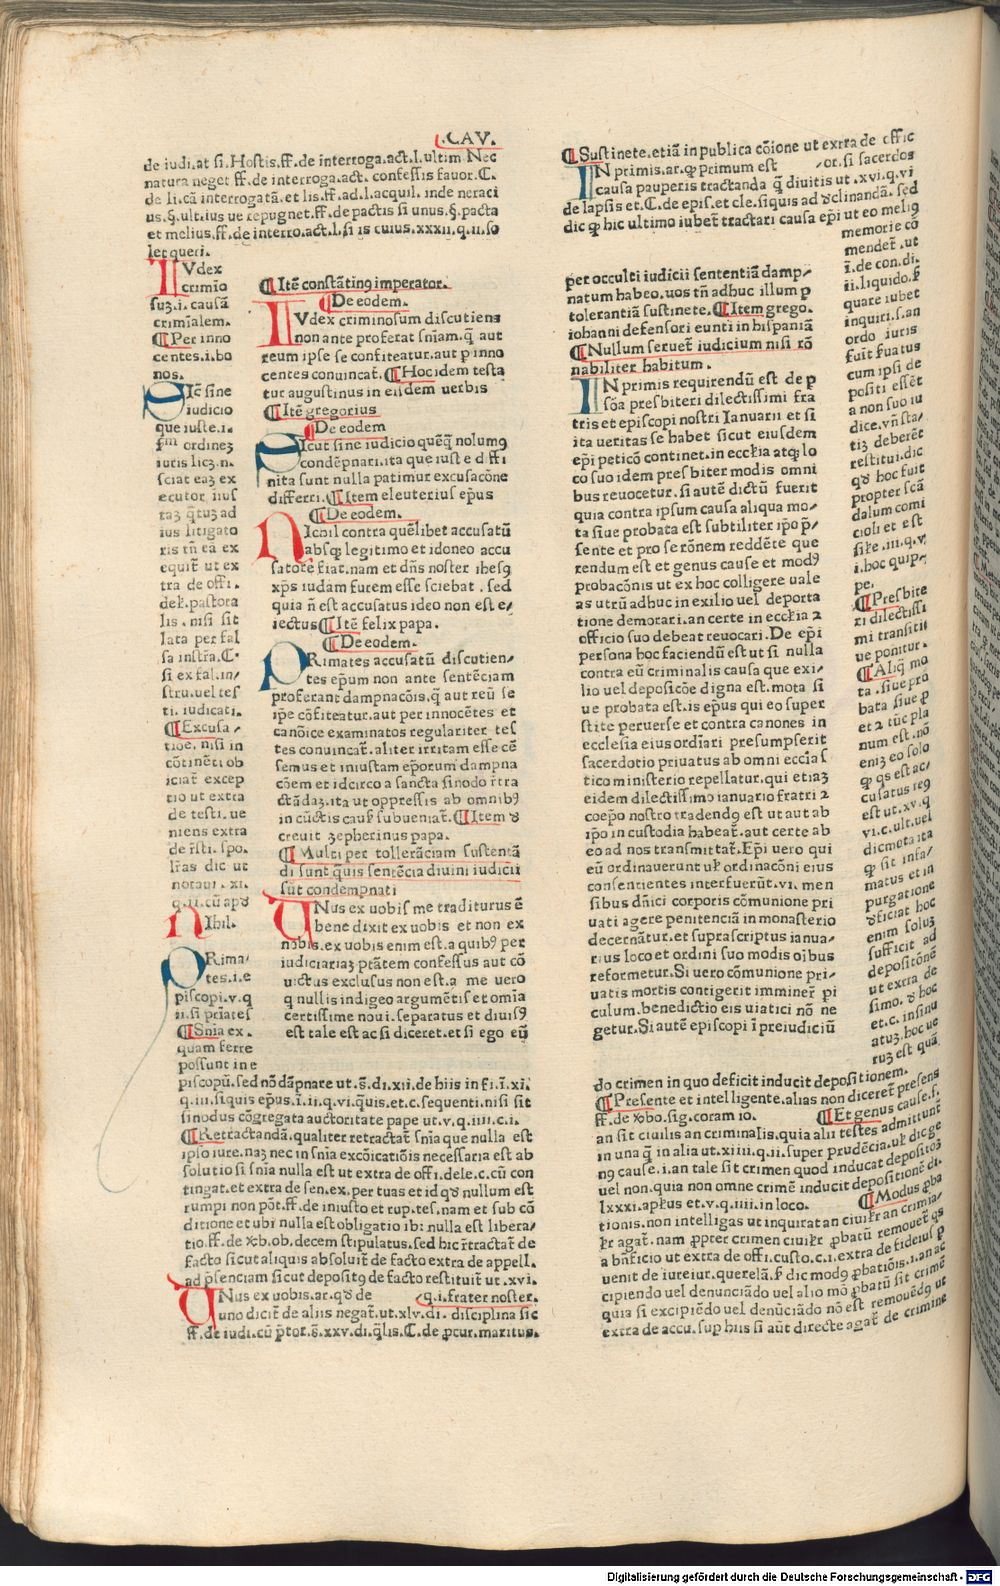 .CAV.
de iudi.at si. Hostis.ff.de interroga.act.l.ultim Nec
natura neget ff.de interroga.act. confessis fauor.C.
de li.cā interrogatā.et lis.ff.ad.l.acquil. inde neraci
us.§.ult.ius ue repugnet.ff.de pactis si unus.§.pacta
et melius.ff.de interro.act.l.si is cuius.xxxii.q.ii.so
let queri.
IVdex
crimīo
suꝫ.i.causā
crimīalem.
¶Per inno
centes.i.bo
nos.
SIc̄ sine
iudicio
que iuste.i.
ordineꝫ
iuris licꝫ.n.
sciat eaꝫ ex
ecutor iius
taꝫ q̄tuꝫ ad
ius litigato
ris tn̄ eā ex
equit̄ ut ex
tra de offi.
del.pastora
lis.nisi sit
lata per fal
sa instr̄a.C.
si ex fal.in/
stru.uel tes
ti.iudicati.
¶Excusa/
tiōe.nisi in
cōtinēti ob
iciat̄ excep
tio ut extra
de testi.ue
niens extra
de r̄sti.spo.
lr̄as dic ut
notaui.xi.
q.ii.cū apꝺ
NIhil.
PRima/
tes.i.e
piscopi.v.q
ii.si priātes
¶Snia ex.
quam ferre
possunt in e
¶Itē constātinꝰ imperator.
¶De eodem.
IVdex criminosum discutiens
non ante proferat sn̄iam.q̄ aut
reum ipse se confiteatur.aut p inno
centes conuincat̄.¶Hoc idem testa
tur augustinus in eisdem uerbis
¶Itē gregorius
¶De eodem
SIcut sine iudicio quēq̄ nolumꝰ
condēpnari.ita que iuste diffi
nita sunt nulla patimur excusacōne
differri.¶Item eleuterius ep̄us
¶De eodem.
NIchil contra quēlibet accusatū
absqꝫ legitimo et idoneo accu
satore fiat.nam et dn̄s noster ihesꝰ
xp̄s iudam furem esse sciebat.sed
quia n̄ est accusatus ideo non est e/
iectus¶Itē felix papa.
¶De eodem.
PRimates accusatū discutien/
tes ep̄um non ante sentēciam
proferant dampnacōis.q̄ aut reū se
ip̄e cōfiteatur.aut per innocētes et
canōice examinatos regulariter tes
tes conuincat̄.aliter irritam esse cē
semus et iniustam ep̄orum dampna
cōem et idcirco a sancta sinodo r̄tra
ctādaꝫ.ita ut oppressis ab omnibꝰ
in cūctis caus̄ subueniat̄.¶Item ꝺ
creuit zepherinus papa.
¶Multi per tollerāciam sustentā
di sunt q̄uis sentēcia diuini iudicii
sūt condempnati
VNus ex uobis me traditurus ē
bene dixit ex uobis et non ex
nobis.ex uobis enim est.a quibꝰ per
iudiciariaꝫ ptātem confessus aut cō
uictus exclusus non est.a me uero
q nullis indigeo argumētis et omīa
certissime noui.separatus et diuisꝰ
est tale est ac si diceret.et si ego eū
piscopū.sed nō dāpnare ut.s̄.di.xii.de hiis in fi.i.xi.
q.iii.si quis ep̄us.i.ii.q.vi.quis.et.c.sequenti.nisi sit
sinodus cōgregata auctoritate pape ut.v.q.iiii.c.i.
¶Retractandā.qualiter retractat̄ sn̄ia que nulla est
ipso iure.naꝫ nec in sn̄ia excōicatiōis necessaria est ab
solutio si sn̄ia nulla est ut extra de offi.dele.c.cū con
tingat.et extra de sen.ex.per tuas et id qꝺ nullum est
rumpi non pōt.ff.de iniusto et rup.tes.nam et sub cō
ditione et ubi nulla est obligatio ibi nulla est libera/
tio.ff.de v̄b.ob.decem stipulatus.sed hic r̄tractat̄ de
facto sicut aliquis absoluit̄ de facto extra de appell.
ad p̄senciam sicut depositꝰ de facto restituit̄ ut.xvi.
q.i.frater noster.
VNus ex uobis.ar.qꝺ de
uno dicit̄ de aliis negat̄.ut.xlv.di.disciplina sic
ff.de iudi.cū p̄tor.s̄.xxv.di.q̄lis.C.de p̄cur.maritus.
¶Sustinete.etiā in publica cōione ut extra de offic
or.si sacerdos
IN primis.ar.qꝫ primum est
causa pauperis tractanda q̄ diuitis ut.xvi.q.vi
de lapsis et.C.de epis.et cle.si quis ad ꝺclinandā.sed
dic qꝫ hic ultimo iubet̄ tractari causa ep̄i ut eo meliꝰ
per occulti iudicii sententiā damp/
natum habeo.uos tn̄ adhuc illum p
tolerantiā sustinete.¶Item grego.
iohanni defensori eunti in hispaniā
¶Nullum seruet iudicium nisi rō
nabiliter habitum.
IN primis requirendū est de p
sōa presbiteri dilectissimi fra
tris et episcopi nostri Ianuarii et si
ita ueritas se habet sicut eiusdem
ep̄i peticō continet.in eccl̄ia atqꝫ lo
co suo idem presbiter modis omni
bus reuocetur.si autē dictū fuerit
quia contra ipsum causa aliqua mo/
ta siue probata est subtiliter ip̄o p̄/
sente et pro se rōnem reddēte que
rendum est et genus cause et modꝰ
probacōnis ut ex hoc colligere uale
as utrū adhuc in exilio uel deporta
tione demorari.an certe in eccl̄ia 2
officio suo debeat reuocari.De ep̄i
persona hoc faciendū est ut si nulla
contra eū criminalis causa que exi/
lio uel deposicōe digna est.mota si
ue probata est.is ep̄us qui eo super
stite peruerse et contra canones in
ecclesia eius ordīari presumpserit
sacerdotio priuatus ab omni ecciās
tico ministerio repellatur.qui etiaꝫ
eidem dilectissimo ianuario fratri 2
coep̄o nostro tradendꝰ est ut aut ab
ip̄o in custodia habeat̄.aut certe ab
eo ad nos transmittat̄.Ep̄i uero qui
eū ordinauerunt ul̄ ordinacōni eius
consentientes interfuerūt.vi.men
sibus dn̄ici corporis cōmunione pri
uati agere penitenciā in monasterio
decernātur.et suprascriptus ianua/
rius loco et ordini suo modis oībus
reformetur.Si uero cōmunione pri/
uatis mortis contigerit imminer̄ pi
culum.benedictio eis uiatici nō ne
getur.Si autē episcopi ī preiudiciū
memorie cō
mendet̄.ut
i.de con.di.
ii.liquido.p̄
quare iubet
inquiri.s.an
ordo iuris
fuit s̄uatus
cum ipsi de
positi essēt
a non suo iu
dice.vn̄ sta/
tiꝫ deberēt
restitui.dic
qꝺ hoc fuit
propter scā
dalum comi
cioli et est
sil̄e.iii.q.v.
i.hoc quip/
pe.
¶Presbite
ri dilectissi
mi transitit
ue ponitur.
¶Aliq̄ mo
ta.siue pro
bata siue p̄
et 2 tūc pla
num est.nō
eniꝫ eo solo
qꝫ qs est ac/
cusatus reꝰ
est ut.xv.q
vi.c.ult.uel
dic mota ita
qꝫ sit infa/
matus et in
purgatione
ꝺficiat hoc
enim soluꝫ
sufficit ad
depositōnē
ut extra de
simo.ꝺ hoc
et.c.insinu
atuꝫ.hoc ue
ruꝫ est quā
do crimen in quo deficit inducit depositionem.
¶Presente et intelligente.alias non diceret̄ presens
ff.de v̄bo.sig.coram 10.
¶Et genus cause.s.
an sit ciuilis an criminalis.quia alii testes admittunt̄
in una q̄ in alia ut.xiiii.q.ii.super prudēcia.ul̄ dic ge
nꝰ cause.i.an tale sit crimen quod inducat depositōꝫ
uel non.quia non omne crimē inducit depositionē di.
lxxxi.apl̄us et.v.q.iiii.in loco.
¶Modus p̄ba
tionis.non intelligas ut inquirat an ciuil̄r an crimīa/
l̄r agat̄.nam p̄pter crimen ciuil̄r p̄batū remouet̄ qs
a bn̄ficio ut extra de offi.custo.c.i.extra de fideius p
uenit.de iureiur.querelā.s̄ dic modꝰ p̄batiōis.i.an ac
cipiendo uel denunciādo uel alio mō p̄batū sit crimē
quia si excipiēdo uel denūciādo nō est remouēdꝰ ut
extra de accu.sup hiis si aūt directe agat̄ de crimine
Digitalisierung gefördert durch die Deutsche Forschungsgemeinschaft - DFG